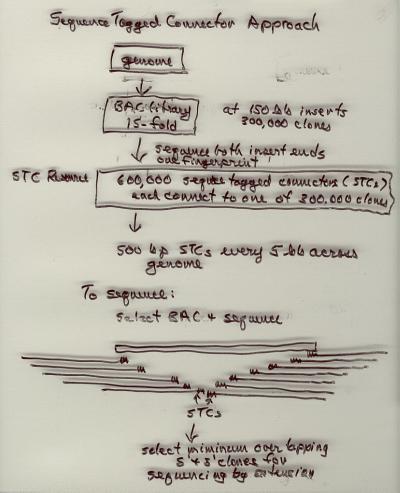 Sequence Tagged Connector Approach
genome
BAC library
15-fold
at 150 kb inserts
300,000 clones
sequence both insert ends
one fingerprint
STC Resource
600,000 sequence tagged connectors (STCs)
each connect to one of 300,000 clones
500 bp STCs every 5 kb across
genome
To sequence:
select BAC + sequence
STCs
select minimum overlapping
5' + 3' clones for
sequencing by extension